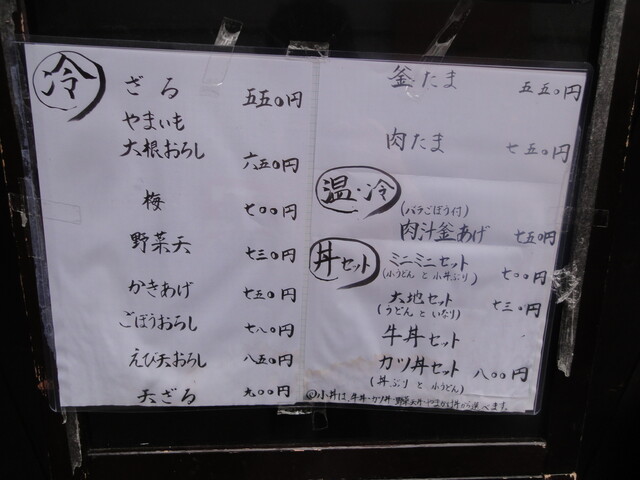 冷
ざる 五五〇円
やまいも
大根おろし 六五〇円
梅 七〇〇円
野菜天 七三〇円
かきあげ 七五〇円
ごぼうおろし 七八〇円
えび天おろし 八五〇円
天ざる 九〇〇円
釜たま 五五〇円
肉たま 七五〇円
温・冷
(バラごぼう付)
肉汁釜あげ 七五〇円
丼セット
ミニミニセット 七〇〇円
(小うどんと小丼ぶり)
大地セット 七三〇円
(うどんといなり)
牛丼セット
カツ丼セット 八〇〇円
(丼ぶりと小うどん)
◎小丼は、牛丼・カツ丼・野菜天丼・やまかけ丼から選べます。